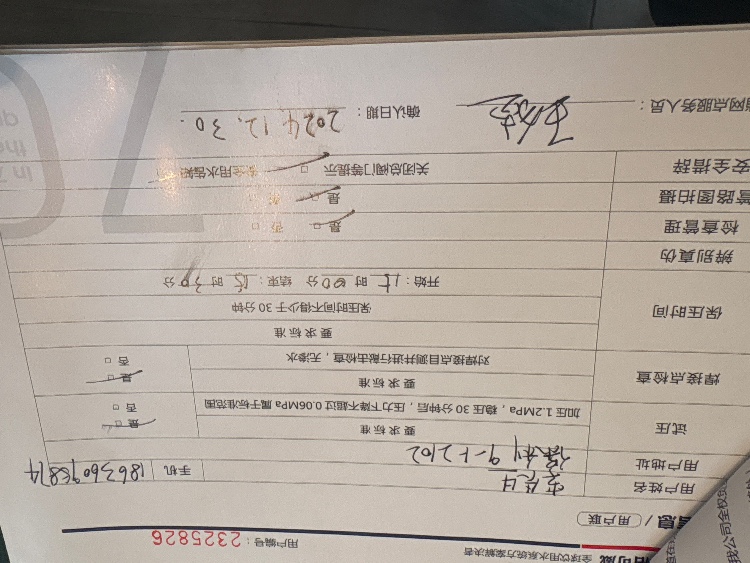 全球饮用水系统方案解决者
用户编号：2325826
信息 /（用户联）
用户姓名
手机 18636096874
用户地址 9-1-2102
试压
要求标准
加压1.2MPa，稳压 30 分钟后，压力下降不超过 0.06MPa 属于标准范围
是 □
否 □
焊接点检查
要求标准
对焊接点目测并进行敲击检查，无渗水
是 □
否 □
保压时间
要求标准
保压时间不得少于 30 分钟
开始：15 时 00 分 结束：15 时 30 分
辨别真伪
检查管理
是 □ 否 □
管路图拍摄
是 □ 否 □
安全措辞
关闭总阀门等提示 □ 安全用水告知
网点服务人员：
确认日期：2024.12.30.
我公司全权负